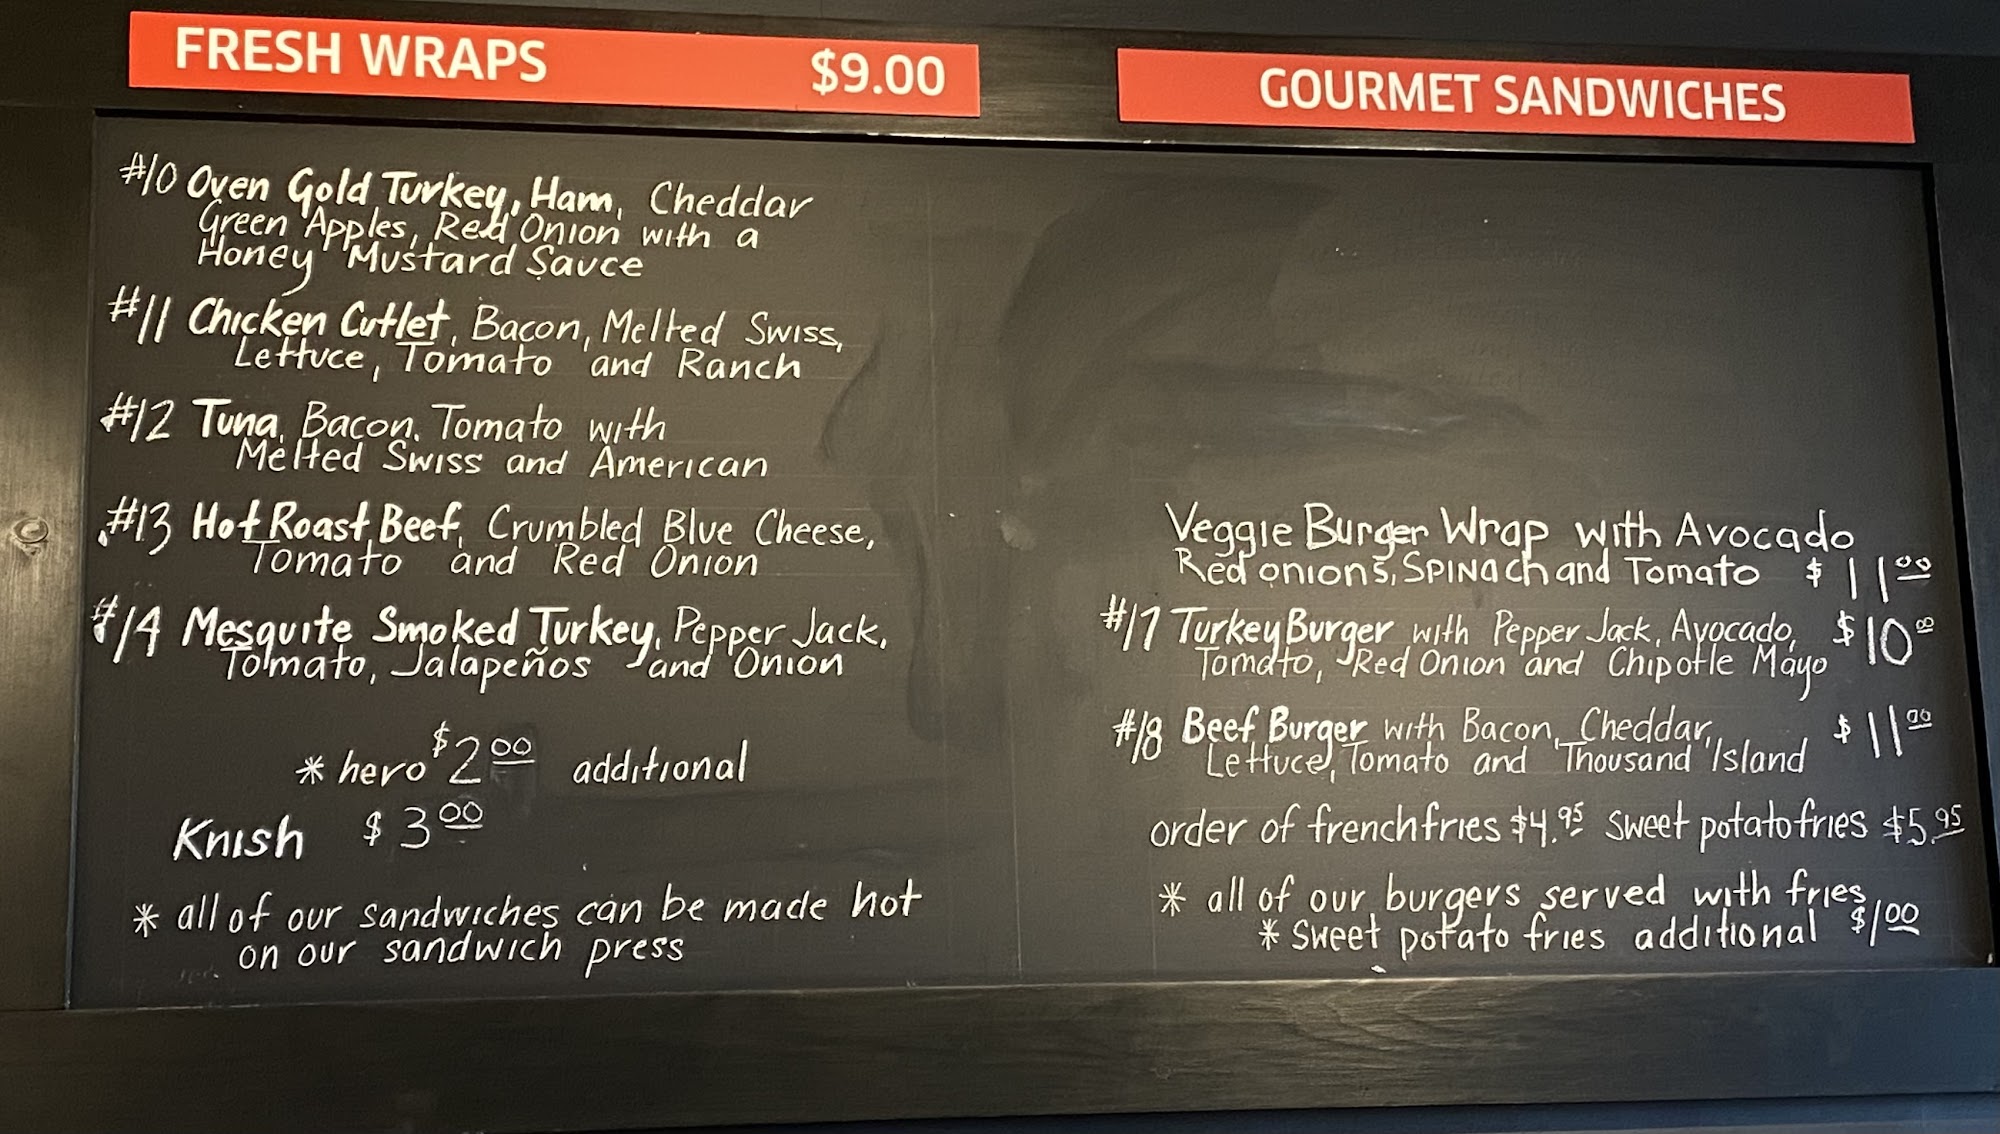 FRESH WRAPS $9.00
#10 Oven Gold Turkey, Ham, Cheddar
Green Apples, Red Onion with a
Honey Mustard Sauce
#11 Chicken Cutlet, Bacon, Melted Swiss,
Lettuce, Tomato and Ranch
#12 Tuna, Bacon, Tomato with
Melted Swiss and American
#13 Hot Roast Beef, Crumbled Blue Cheese,
Tomato and Red Onion
#14 Mesquite Smoked Turkey, Pepper Jack,
Tomato, Jalapeños and Onion
* hero $2.00 additional
Knish $3.00
* all of our sandwiches can be made hot
on our sandwich press
GOURMET SANDWICHES
Veggie Burger Wrap with Avocado
Red onions, Spinach and Tomato $11.00
#17 Turkey Burger with Pepper Jack, Avocado, $10.00
Tomato, Red Onion and Chipotle Mayo
#18 Beef Burger with Bacon, Cheddar, $11.00
Lettuce, Tomato and Thousand Island
order of french fries $4.95 sweet potato fries $5.95
* all of our burgers served with fries
* Sweet potato fries additional $1.00